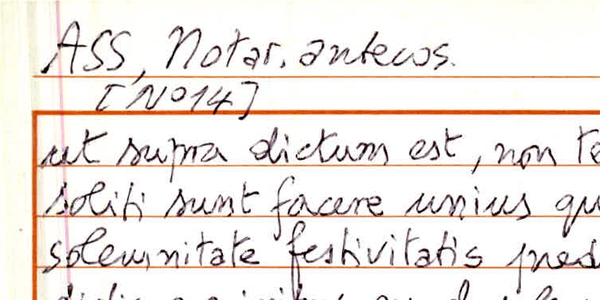 ASS, Notar. antecos.
[N°14]
ut supra dictum est, non te
soliti sunt facere unius qu
solemnitate festivitatis pred